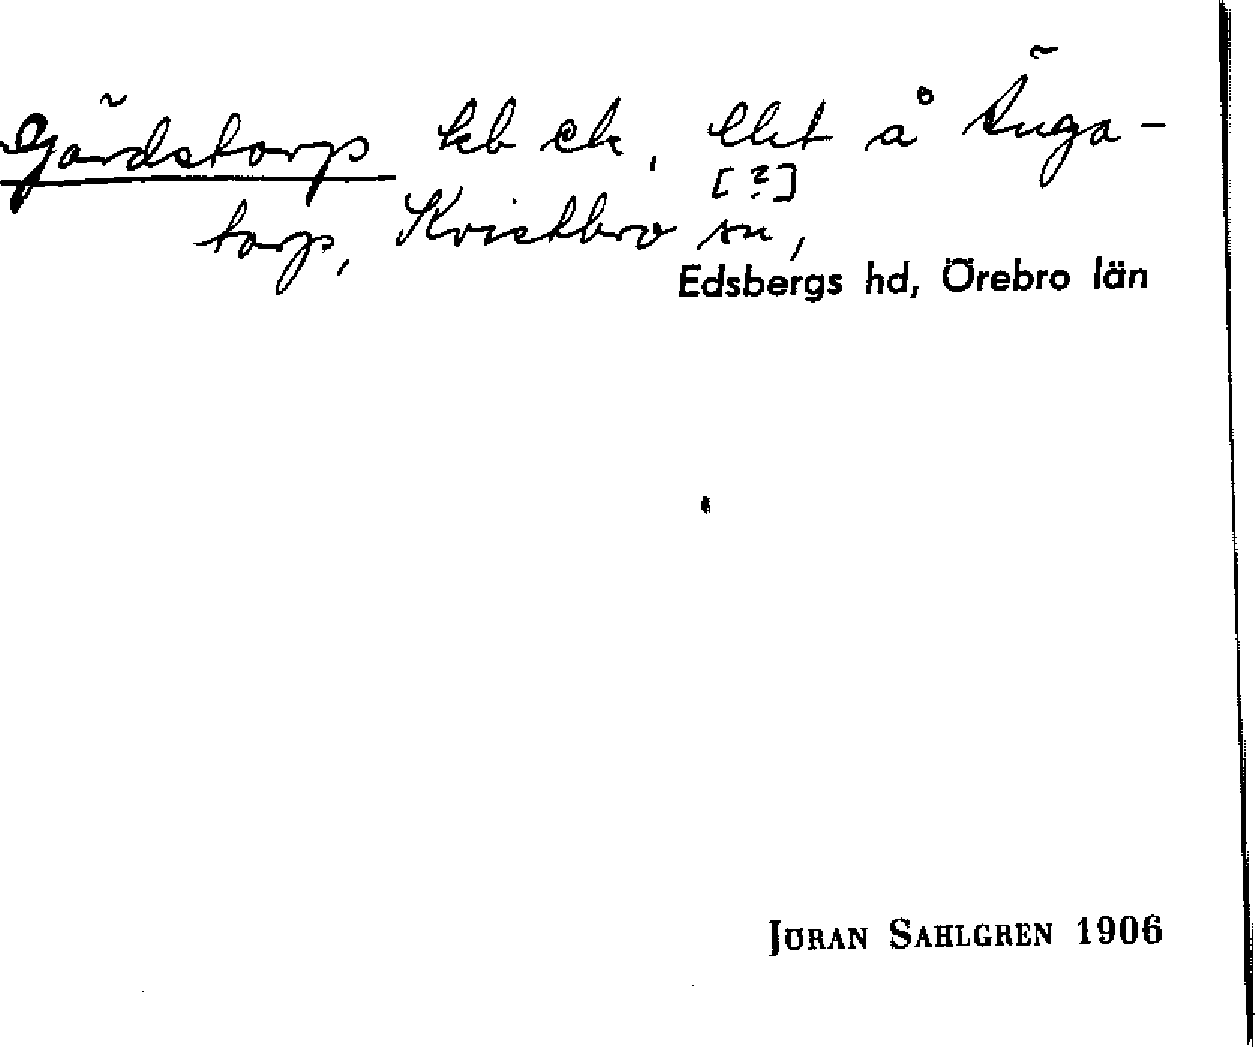 Gärdstorp kb ek, Elet å Änga-
[?]
torp, Kvistbro sn,
Edsbergs hd, Örebro län
JÖRAN SAHLGREN 1906